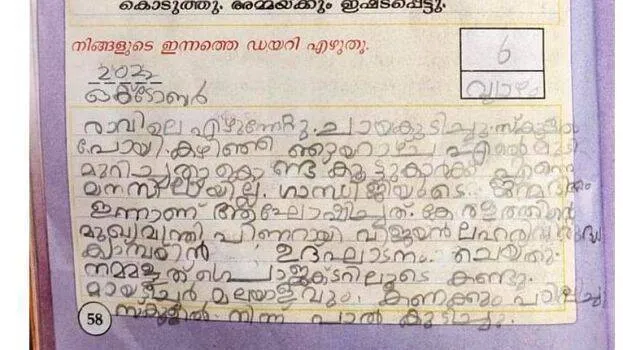 കൊടുത്തു. അമ്മയ്ക്കും ഇഷ്ടപ്പെട്ടു.
നിങ്ങളുടെ ഇന്നത്തെ ഡയറി എഴുതൂ.
6
2022
വ്യാഴം
ഒക്ടോബർ
രാവിലെ എഴുന്നേറ്റു. ചായകുടിച്ചു. സ്കൂളിൽ
പോയി. കഴിഞ്ഞ ഞായറാഴ്ച എൻ്റെ മുടി
മുറിച്ചതുകൊണ്ട് കൂട്ടുകാർക്ക് എന്നെ
മനസ്സിലായില്ല. ഗാന്ധിജിയുടെ ജന്മദിനം
ഇന്നാണ് ആഘോഷിച്ചത്. കേരളത്തിൻ്റെ
മുഖ്യമന്ത്രി പിണറായി വിജയൻ ലഹരിവിരുദ്ധ
ക്യാമ്പയിൻ ഉദ്ഘാടനം ചെയ്തു.
നമ്മളത് പ്രൊജക്ടറിലൂടെ കണ്ടു.
ടീച്ചർ മലയാളവും, കണക്കും പഠിപ്പിച്ചു
സ്കൂളിൽ നിന്ന് പാൽ കുടിച്ചു.
58